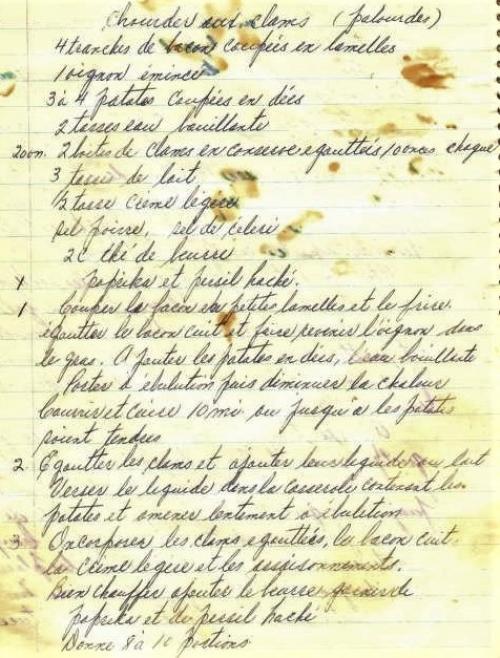 Chourder aux clams (palourdes)
4 tranches de bacon coupées en lamelles
1 oignon émincé
3 à 4 patates coupées en dées
2 tasses eau bouillante
20 on. 2 boites de clams en conserve egouttées 10 onces chaque
3 tasses de lait
½ tasse crème légère
sel poivre, sel de céleri
2 c thé de beurre
paprika et persil haché.
1 Couper le bacon en petites lamelles et le frire.
égoutter le bacon cuit et faire revenir l'oignon dans
le gras. Ajouter les patates en dées, l'eau bouillante
Porter à ébulition puis diminuer la chaleur
Couvrir et cuire 10 mi ou jusqu'a les patates
soient tendres
2. Egoutter les clams et ajouter leur leguide au lait
Verser le leguide dans la casserole contenant les
patates et amener lentement à ébulition
3. Incorporer les clams egouttées, le bacon cuit.
la crème legere et les assaisonnements.
Bien chauffer ajouter le beurre garnir de
paprika et de persil haché
Donne 8 à 10 portions